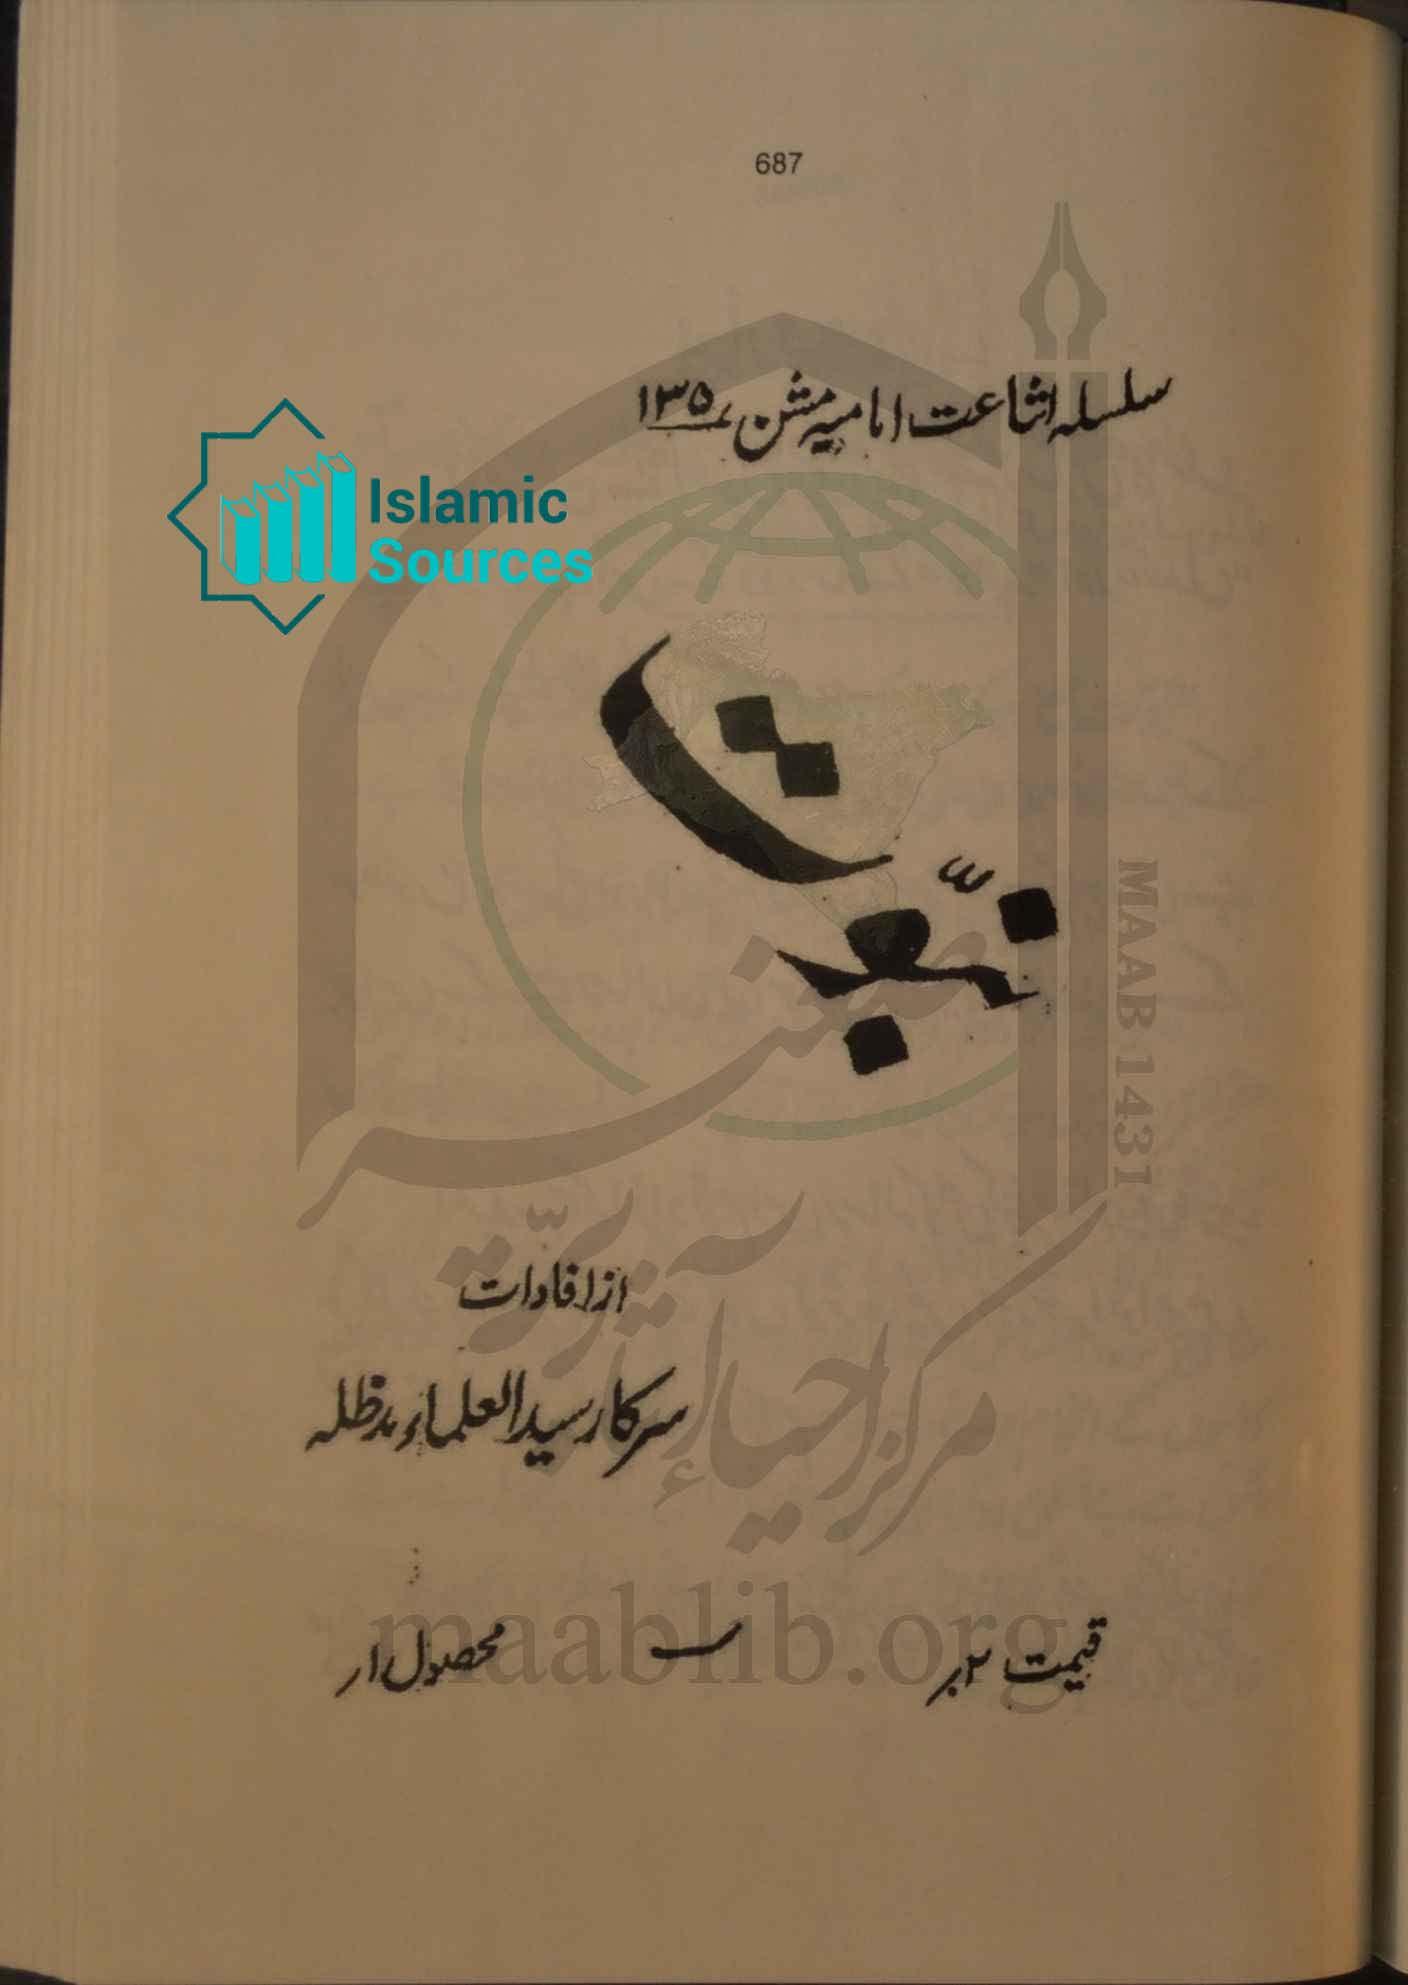 687
سلسلہ اشاعت امامیہ مشن ۱۳۵
Islamic
Sources
نبوّت
MAAB 1431
از افادات
سرکار سید العلماء مدظلہ
مرکز احیاء آثار
maablib.org
قیمت ۲؍
محصول ۱؍